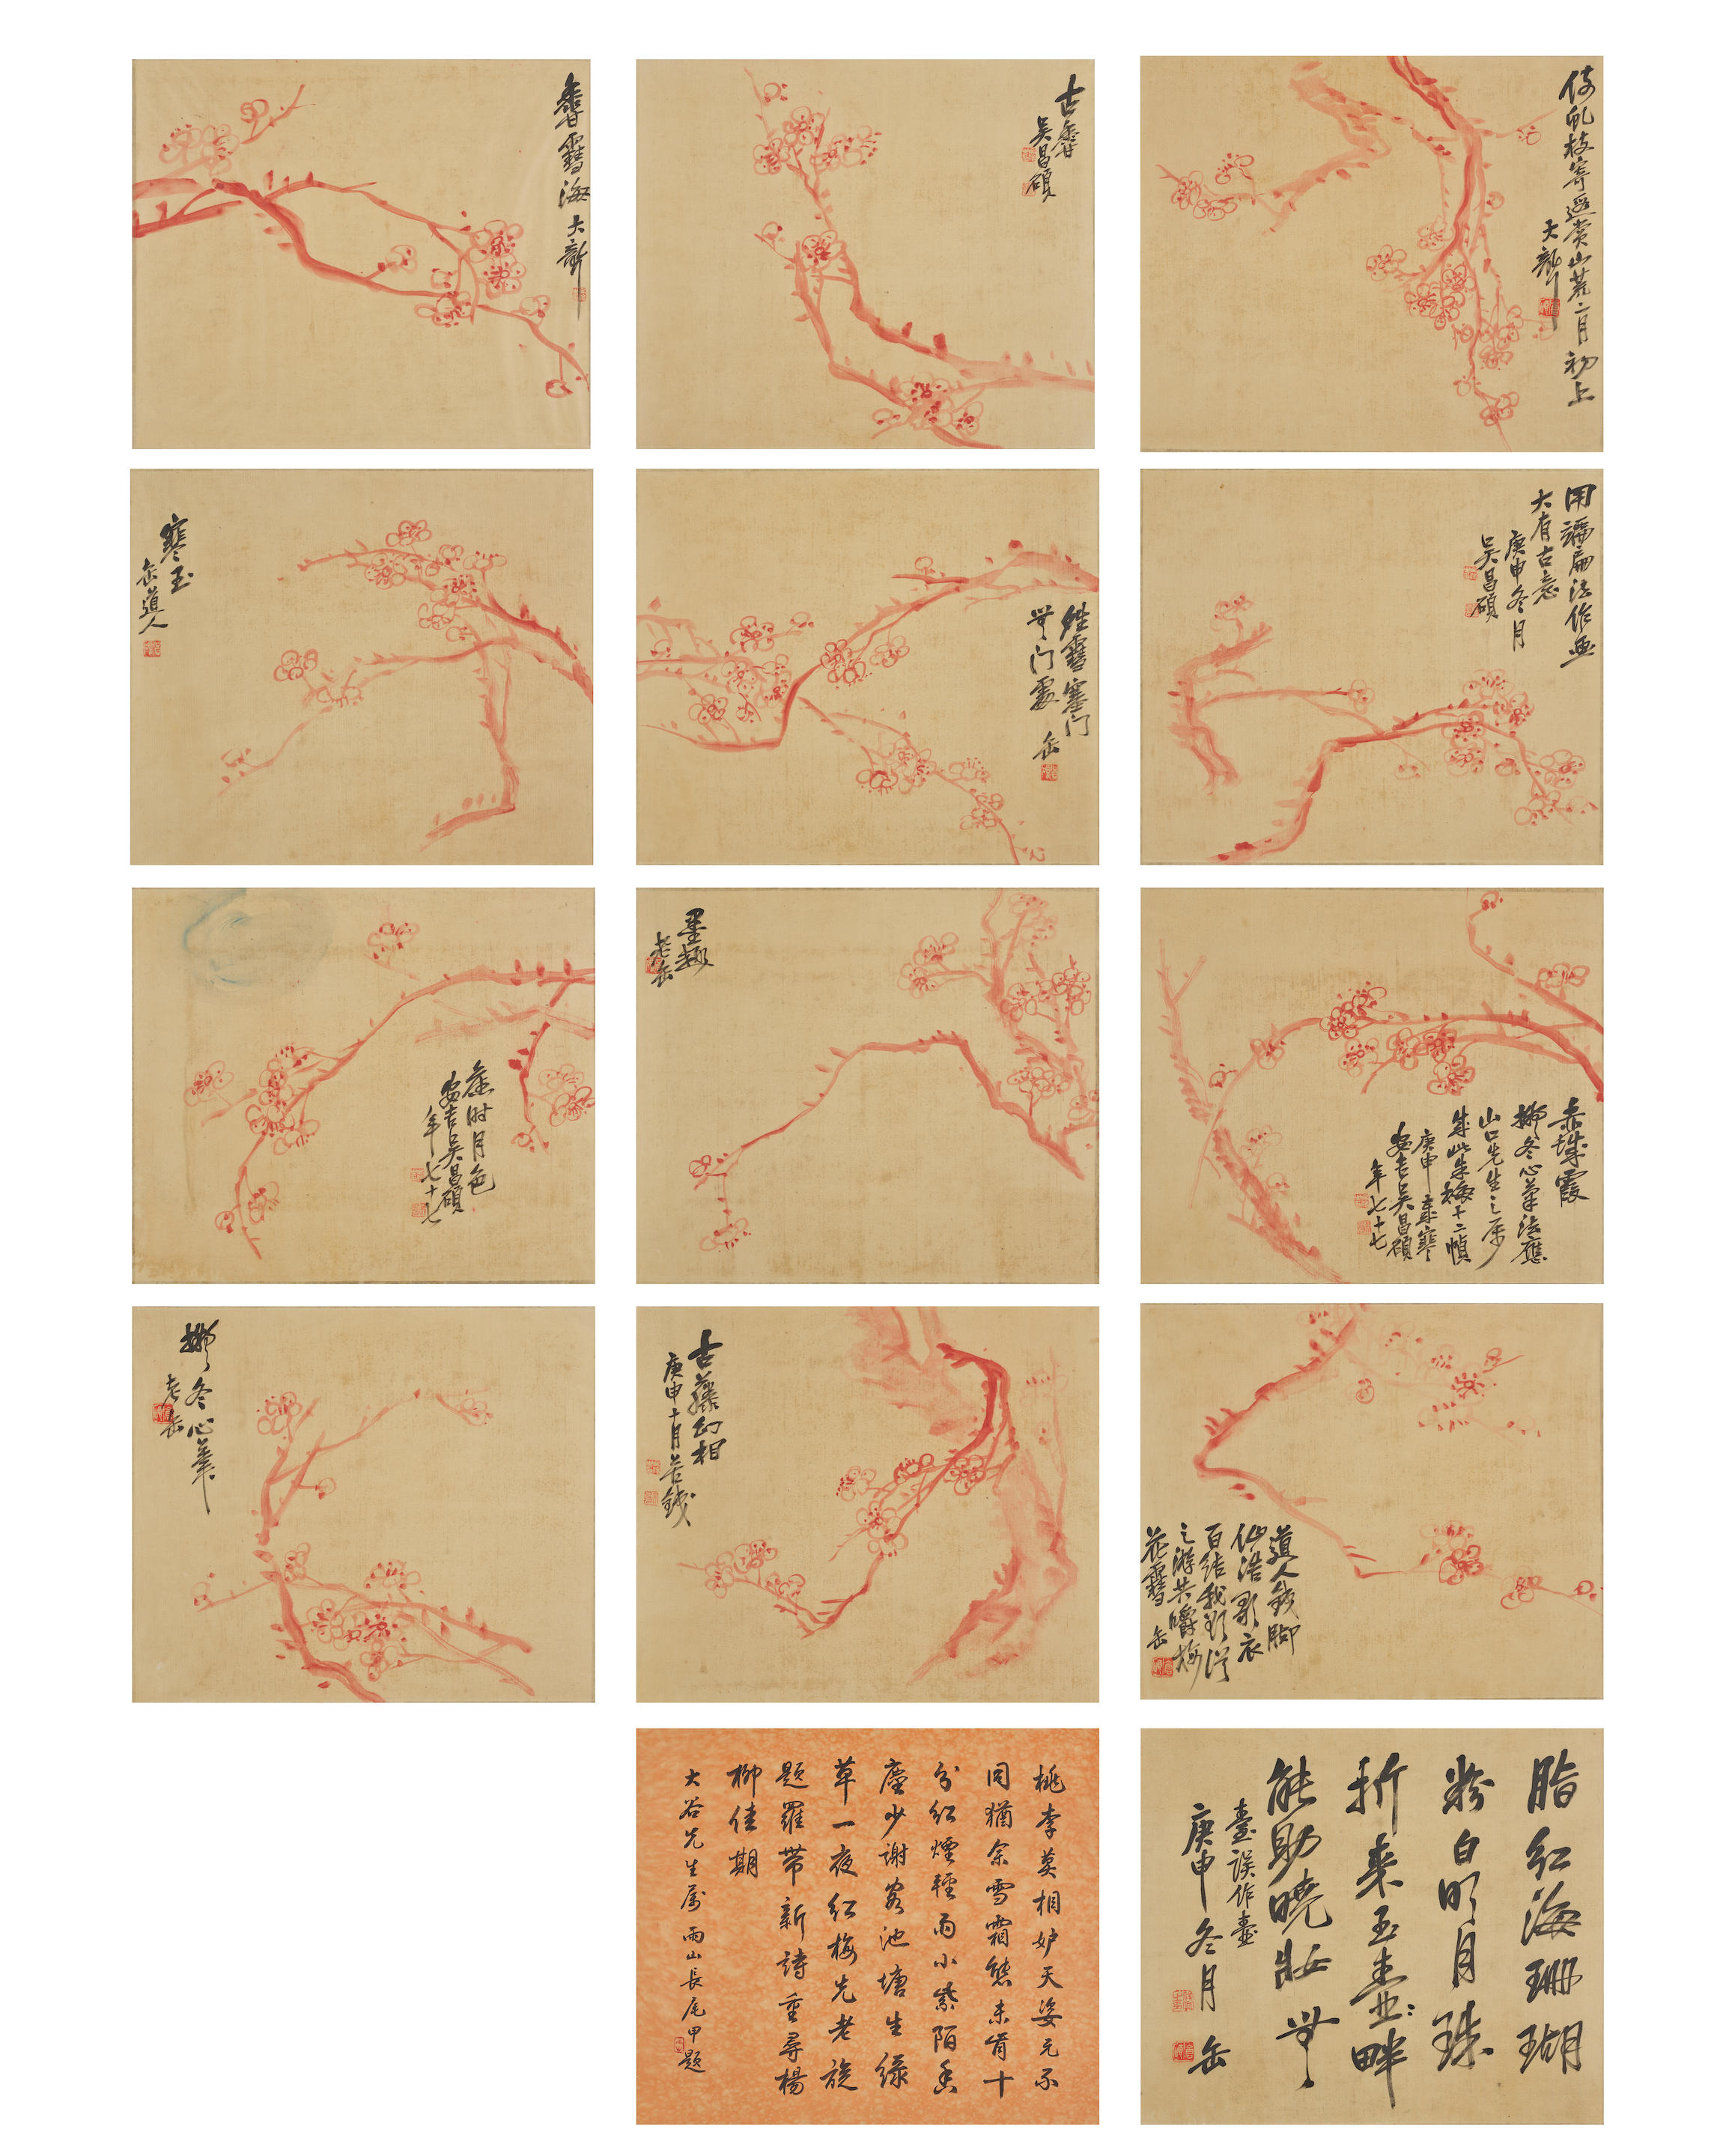 倚虬枝寄遐赏山荒二月初上
大聾
古香
吴昌碩
香雪海大聾
用扁法作画
大有古意
庚申冬月
吴昌碩
雪塞门
無门處 缶
寒玉
缶道人
赤城霞
擬冬心筆法應
山口先生之属
成此朱梅十二幀
庚申寒
安吉吴昌碩
年七十七
墨趣
老缶
舊时月色
安吉吴昌碩
年七十七
道人鐵脚
仙浩歌衣
百結我欲從
之游共嚼梅
花雪 缶
古藤幻相
庚申十月苦鐵
擬冬心筆
老缶
脂紅海珊瑚
粉白明月珠
折來玉壺畔
能助曉妝無
臺誤作壺
庚申冬月 缶
桃李莫相妒夭姿元不
同猶余雪霜態未肯十
分紅煙輕雨小紫陌香
塵少謝客池塘生緑
草一夜紅梅先老旋
題羅帶新詩重尋楊
柳佳期
大谷先生属雨山長尾甲題